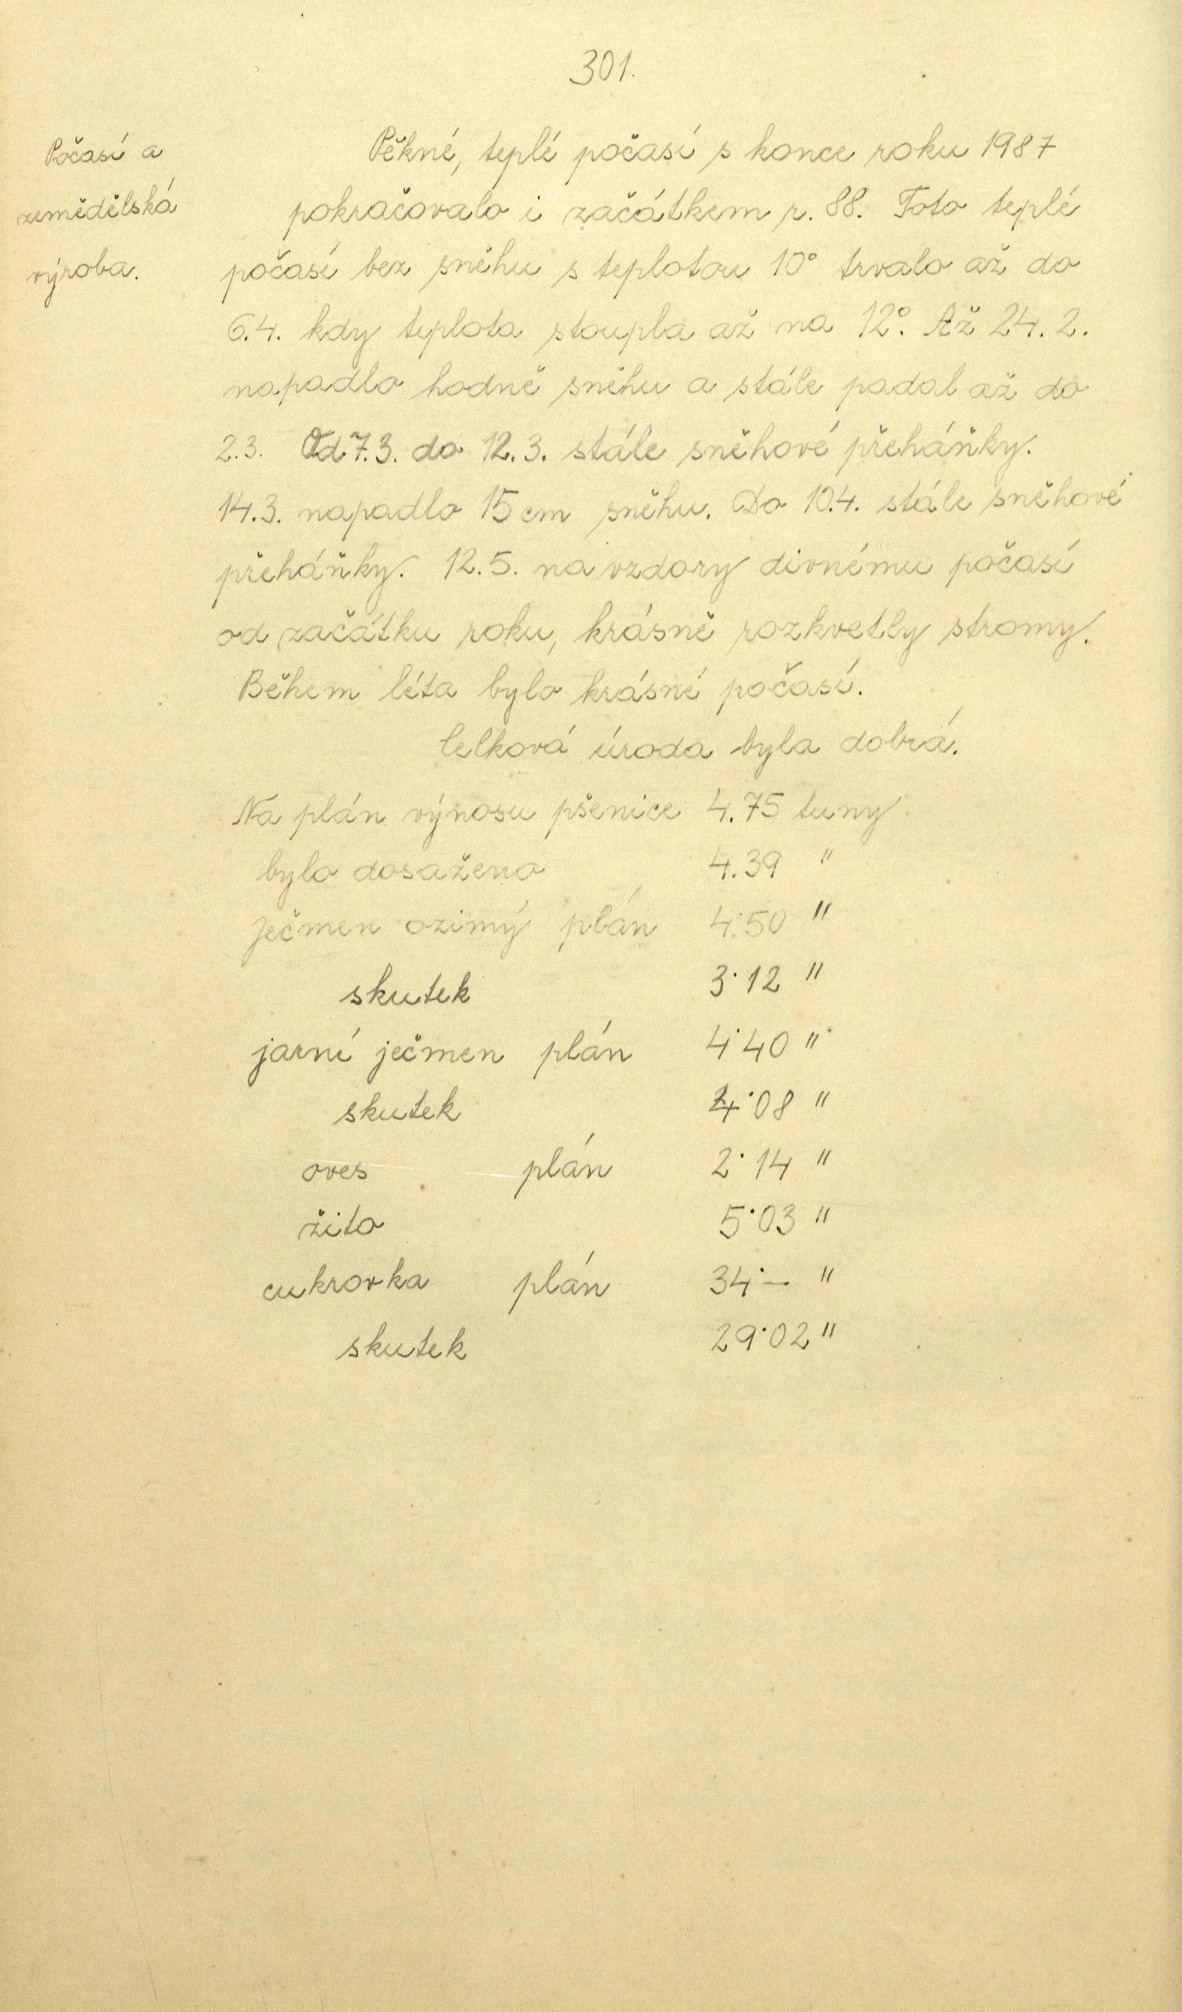 301.
Počasí a
zemědělská
výroba.
Pěkné, teplé počasí s konce roku 1987
pokračovalo i začátkem r. 88. Toto teplé
počasí bez sněhu s teplotou 10° trvalo až do
6.4. kdy teplota stoupla až na 12°. Až 24. 2.
napadlo hodně sněhu a stále padal až do
2.3. Od 7.3. do 12.3. stále sněhové přeháňky.
14.3. napadlo 15 cm sněhu. Do 10.4. stále sněhové
přeháňky. 12.5. na vzdory divnému počasí
od začátku roku, krásně rozkvetly stromy.
Během léta bylo krásné počasí.
Celková úroda byla dobrá.
Na plán výnosu pšenice 4.75 tuny
bylo dosaženo 4.39 "
ječmen ozimý plán 4˙50 "
skutek 3˙12 "
jarní ječmen plán 4˙40 "
skutek 4˙08 "
oves plán 2˙14 "
žito 5˙03 "
cukrovka plán 34˙— "
skutek 29˙02 "